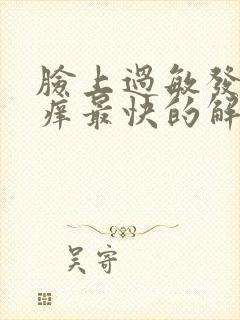 臉上過敏發
痒最快的解
吴寄